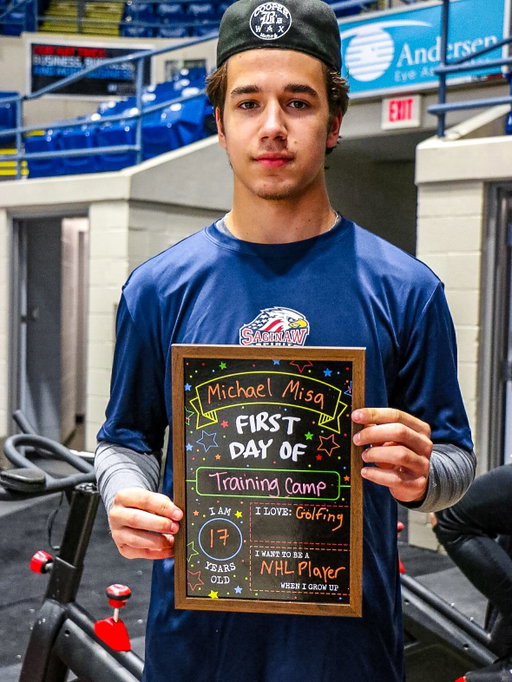 COOPER
B's
WAX
Andersen
Eye As
EXIT
SAGINAW
SPIRIT
Michael Misa
FIRST
DAY OF
Training Camp
I AM
17
YEARS
OLD
I LOVE: Golfing
I WANT TO BE A
NHL Player
WHEN I GROW UP